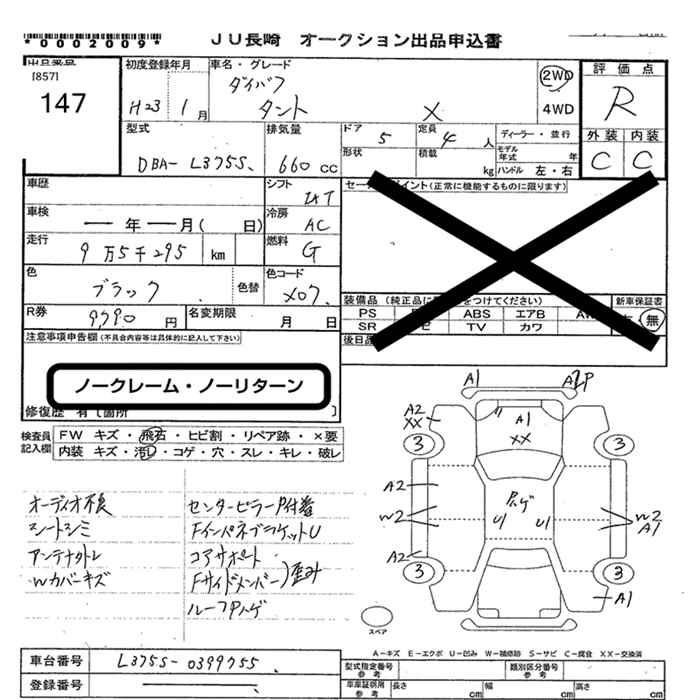 *0002009*
JU長崎 オークション出品申込書
出品番号
[857]
147
初度登録年月
H23年 1月
車名・グレード
ダイハツ
タント X
2WD
4WD
評価点
R
外装 内装
C C
型式
DBA- L375S
排気量
660 cc
ドア 5
定員 4 人
形状
積載 kg
ディーラー・並行
モデル年式 年
ハンドル 左・右
車歴
シフト
車検
年 月( 日)
冷房 AC
走行
9万5千295 km
燃料 G
色
ブラック
色替
色コード
X07
R券
9990 円
名変期限
月 日
セールスポイント(正常に機能するものに限ります)
装備品(純正品に をつけてください)
新車保証書
PS ABS エアB
SR TV カワ
無
後日品
注意事項申告欄(不具合内容等は具体的に記入して下さい)
ノークレーム・ノーリターン
修復歴 有〔箇所 〕
検査員記入欄
FW キズ・飛石・ヒビ割・リペア跡・×要
内装 キズ・汚レ・コゲ・穴・スレ・キレ・破レ
オーディオ不良
シートシミ
アンテナカトレ
Wカバーキズ
センターピラーP付着
FインパネブラケットU
コアサポート
Fサイドメンバー)歪み
ルーフPハゲ
A1 A2P
A2
XX
A1
XX
3 3
A2
W2
Pハゲ
U1 U1
W2
A1
A2
3 3
A1
スペア
A-キズ E-エクボ U-凹み W-補修跡 S-サビ C-腐食 XX-交換済
車台番号 L375S-0399755
登録番号
型式指定番号 参考
類別区分番号 参考
車庫証明用 参考
長さ cm 幅 cm 高さ cm